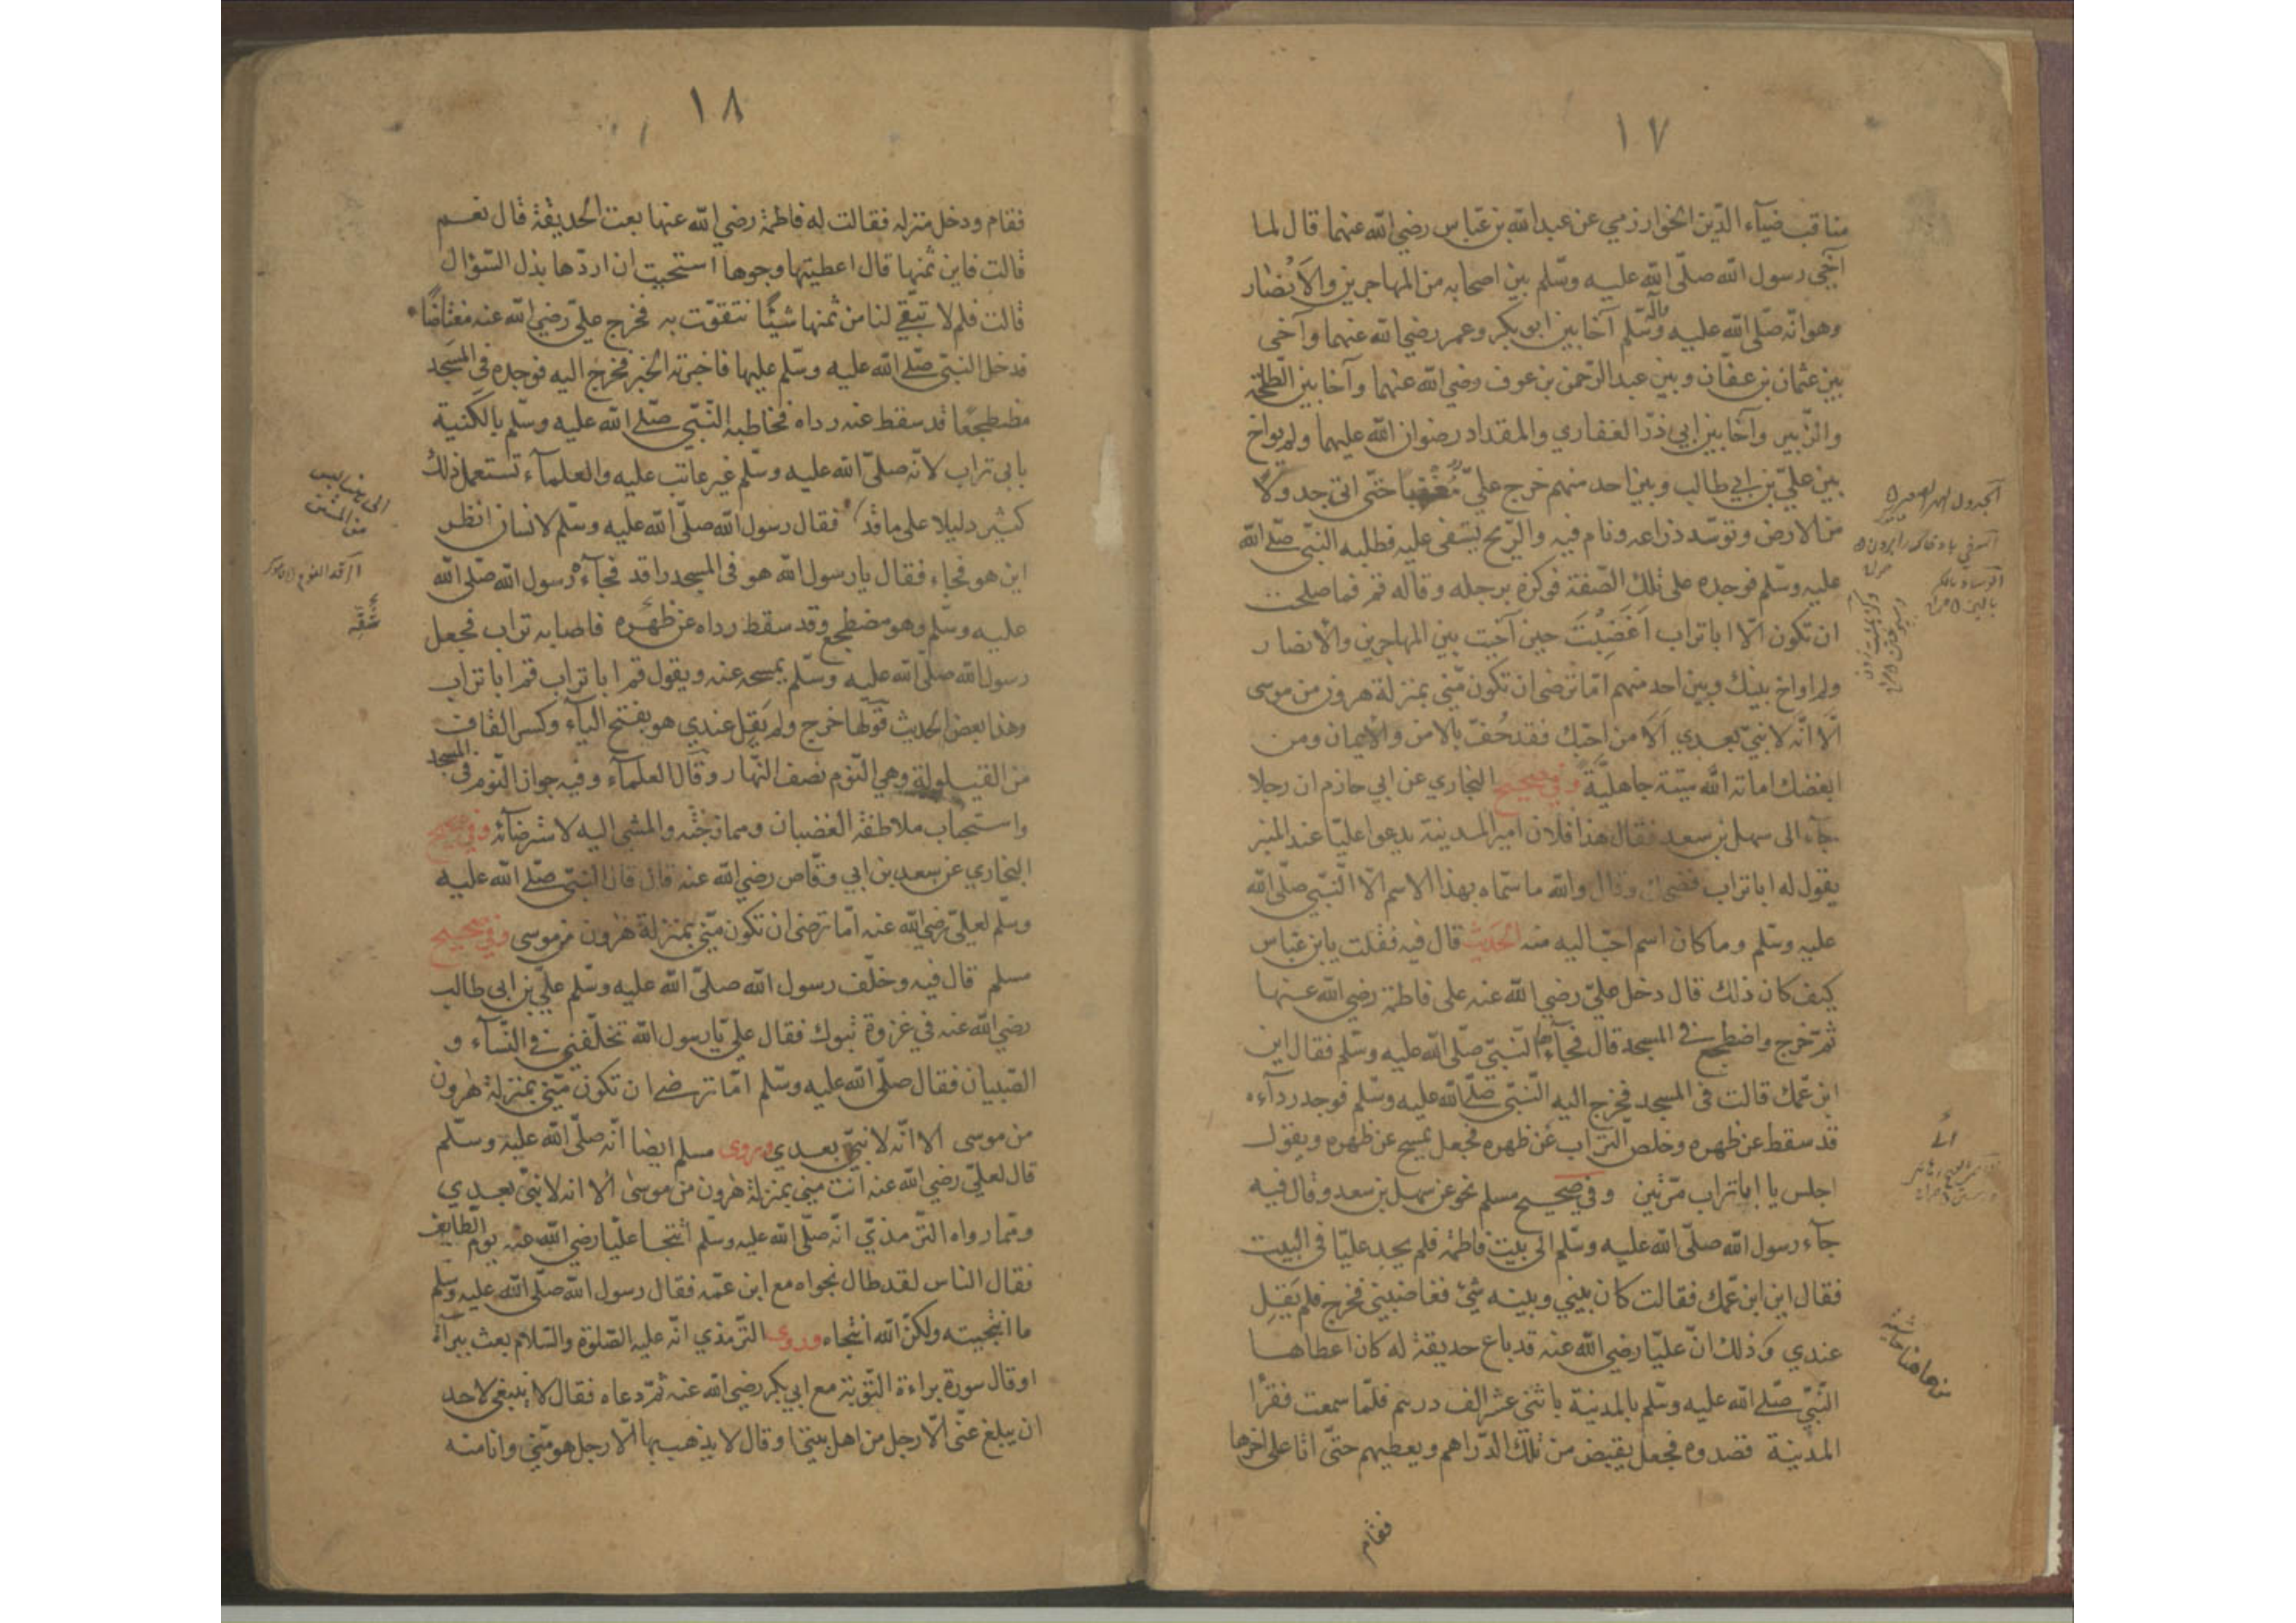 ١٧
مناقب ضيآء الدّين الخوارزمي عن عبدالله بن عبّاس رضي الله عنهما قال لما
آخى رسول الله صلّى الله عليه وسّلم بين اصحابه من المهاجرين والأنصار
وهو انّه صلّى الله عليه وآله وسّلم آخا بين ابو بكر وعمر رضي الله عنهما وآخى
بين عثمان بن عفّان وبين عبد الرّحمن بن عوف رضي الله عنهما وآخا بين الطّلحة
والزّبير وآخا بين ابي ذرّ الغفاري والمقداد رضوان الله عليهما ولم يواخ
بين عليّ بن ابي طالب وبين احد منهم خرج عليّ مُغْضبًا حتّى اتى جدولًا
من الارض وتوسّد ذراعه ونام فيه والرّيح يسفى عليه فطلبه النّبيّ صلّى الله
عليه وسّلم فوجده على تلك الصّفة فوكزه برجله وقاله قم فما صلحت
ان تكون الّا ابا تراب اَغَضِبْتَ حين آخيت بين المهاجرين والأنصار
ولم اواخ بينك وبين احد منهم امّا ترضى ان تكون منّي بمنزلة هرون من موسى
الّا انّه لا نبيّ بعدي اَلَا من احبّك فقد حُفّ بالامن والايمان ومن
ابغضك اماته الله ميتة جاهليّة وفي صحيح البخاري عن ابي حازم ان رجلا
جآء الى سهل بن سعد فقال هذا فلان امير المدينة يدعوا عليّا عند المنبر
يقول له ابا تراب فضحك وقال والله ما سمّاه بهذا الاسم الّا النّبيّ صلّى الله
عليه وسّلم وما كان اسم احبّ اليه منه الحديث قال فيه فقلت يا بن عبّاس
كيف كان ذلك قال دخل عليّ رضي الله عنه على فاطمة رضي الله عنها
ثمّ خرج واضطجع في المسجد قال فجآء النّبيّ صلّى الله عليه وسّلم فقال اين
ابن عّمك قالت في المسجد فخرج اليه النّبيّ صلّى الله عليه وسّلم فوجد ردآءه
قد سقط عن ظهره وخلص التّراب عن ظهره فجعل يمسح عن ظهره ويقول
اجلس يا ابا تراب مرّتين وفي صحيح مسلم نحو عن سهل بن سعد وقال فيه
جآء رسول الله صلّى الله عليه وسّلم الى بيت فاطمة فلم يجد عليّا في البيت
فقال اين ابن عّمك فقالت كان بيني وبينه شئ فغاضبني فخرج فلم يَقِل
عندي وذلك انّ عليّا رضي الله عنه قد باع حديقة له كان اعطاها
النّبيّ صلّى الله عليه وسّلم بالمدينة باثنى عشر الف درهم فلمّا سمعت فقرا
المدينة قصدوه فجعل يقبض من تلك الدّراهم ويعطيهم حتّى اتا على اخرها
فقام
١٨
فقام ودخل منزله فقالت له فاطمة رضي الله عنها بعت الحديقة قال نعم
قالت فاين ثمنها قال اعطيتها وجوها استحييت ان اردّها بذل السّؤال
قالت فلم لا تبّقي لنا من ثمنها شيئًا نتقوّت به فخرج عليّ رضي الله عنه مغتاضًا
فدخل النّبيّ صلّى الله عليه وسّلم عليها فاخبرته الخبر فخرج اليه فوجده في المسجد
مضطجعًا قد سقط عنه رداه فخاطبه النّبيّ صلّى الله عليه وسّلم بالكنية
بابي تراب لانّه صلىّ الله عليه وسّلم غير عاتب عليه والعلمآء تستعمل ذلك
كثير دليلا على ما قد فقال رسول الله صلّى الله عليه وسّلم لانسان انظر
اين هو فجاء فقال يا رسول الله هو في المسجد راقد فجآءه رسول الله صلّى الله
عليه وسّلم وهو مضطجع وقد سقط رداه عن ظهره فاصابه تراب فجعل
رسول الله صلّى الله عليه وسّلم يمسحه عنه ويقول قم ابا تراب قم ابا تراب
وهذا بعض الحديث قولها خرج ولم يَقِل عندي هو بفتح اليآء وكسر القاف
من القيلولة وهي النّوم نصف النّهار وقال العلمآء وفيه جواز النّوم في المسجد
واستحباب ملاطفة الغضبان وممازحته والمشي اليه لاسترضائه وفي صحيح
البخاري عن سعد بن ابي وقّاص رضي الله عنه قال قال النّبيّ صلّى الله عليه
وسّلم لعليّ رضي الله عنه امّا ترضى ان تكون منّي بمنزلة هٰرون من موسى وفي صحيح
مسلم قال فيه وخلّف رسول الله صلىّ الله عليه وسّلم عليّ بن ابي طالب
رضي الله عنه في غزوة تبوك فقال عليّ يا رسول الله تخلّفني في النّسآء و
الصّبيان فقال صلّى الله عليه وسّلم امّا ترضى ان تكون منّي بمنزلة هٰرون
من موسى الا انّه لا نبيّ بعدي وروى مسلم ايضا انّه صلّى الله عليه وسّلم
قال لعليّ رضي الله عنه انت مني بمنزلة هٰرون من موسىٰ الا انه لا نبيّ بعدي
وممّا رواه التّرمذيّ انّه صلّى الله عليه وسّلم انتجا عليّا رضي الله عنه يوم الطّايف
فقال الناس لقد طال نجواه مع ابن عمّه فقال رسول الله صلّى الله عليه وسّلم
ما انتجيته ولكنّ الله انتجاه وروى التّرمذي انّه عليه الصّلوة والسّلام بعث ببرآة
او قال سورة براءة التّوبة مع ابي بكر رضي الله عنه ثمّ دعاه فقال لا ينبغي لاحد
ان يبلغ عنّي الّا رجل من اهل بيتي وقال لا يذهب بها الّا رجل هو منّي وانا منه